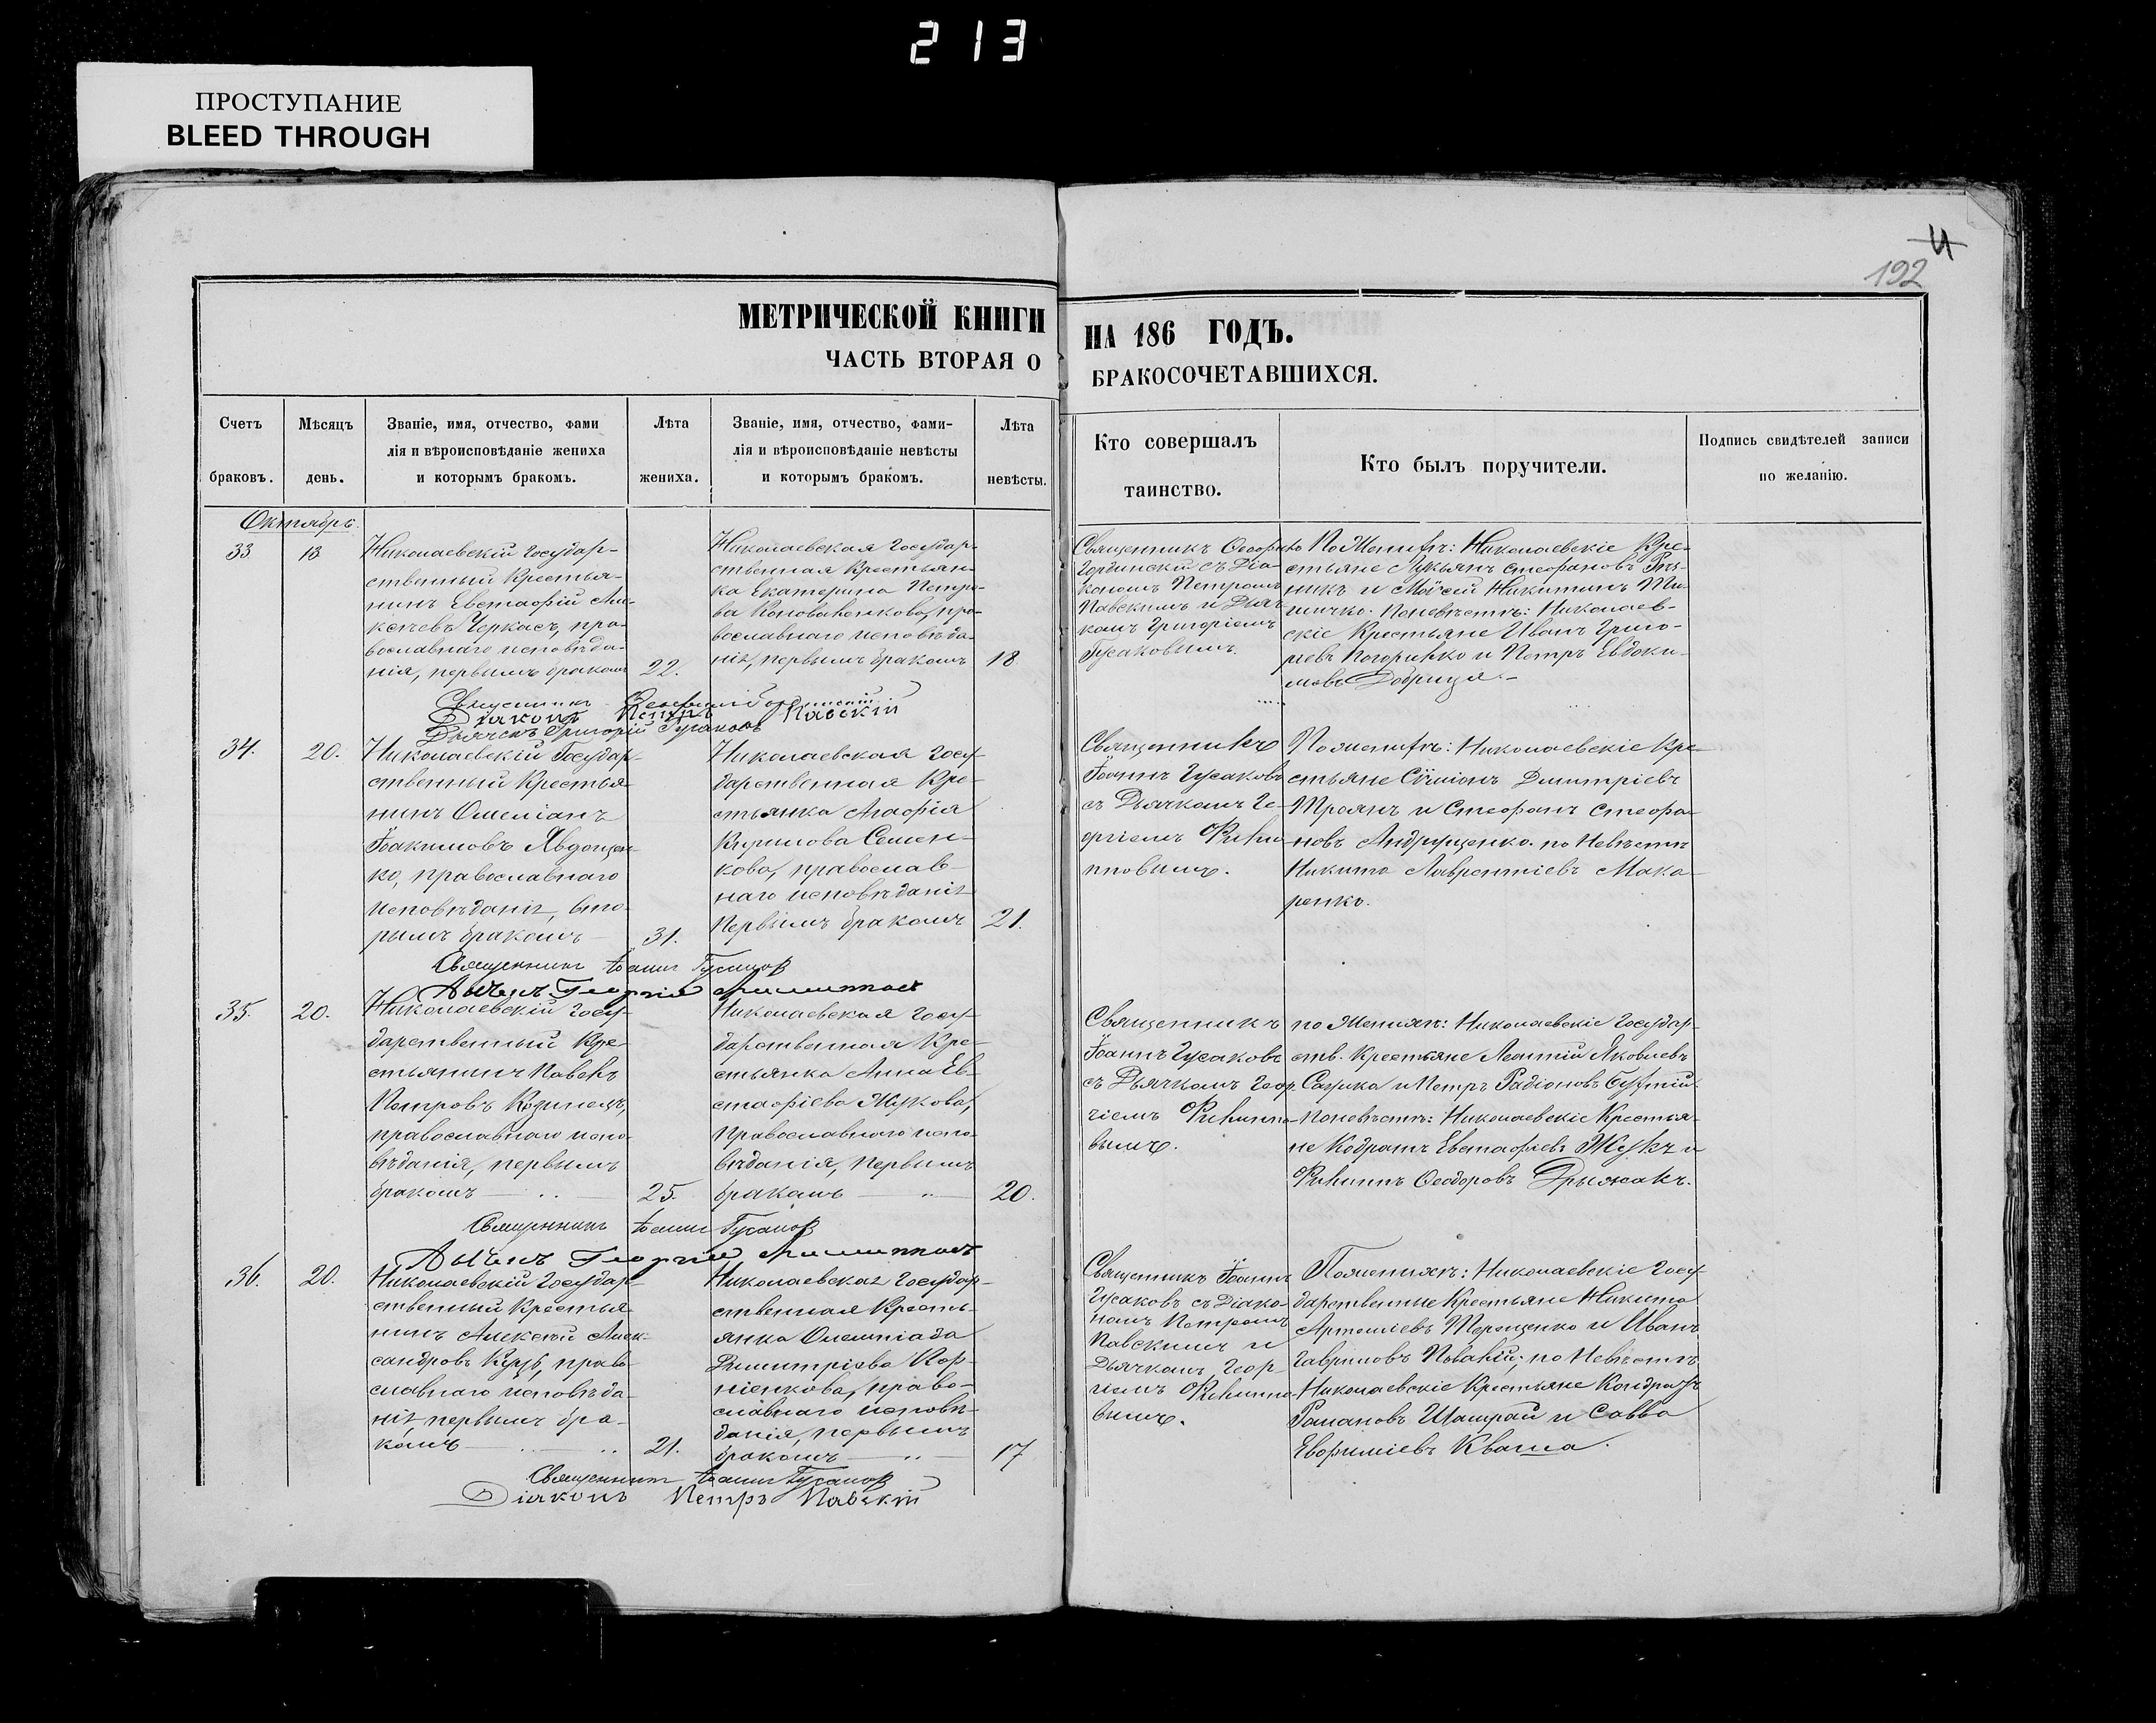 213
ПРОСТУПАНИЕ
BLEED THROUGH
192
МЕТРИЧЕСКОЙ КНИГИ НА 186 ГОДЪ.
ЧАСТЬ ВТОРАЯ О БРАКОСОЧЕТАВШИХСЯ.
Счетъ браковъ.
Мѣсяцъ день.
Званіе, имя, отчество, фами
лія и вѣроисповѣданіе жениха
и которымъ бракомъ.
Лѣта
жениха.
Званіе, имя, отчество, фами-
лія и вѣроисповѣданіе невѣсты
и которымъ бракомъ.
Лѣта
невѣсты.
Кто совершалъ
таинство.
Кто былъ поручители.
Подпись свидѣтелей записи
по желанію.
Октябрь.
33
13
Николаевскій государ-
ственный крестья-
нинъ Евстафій Але-
ксѣевъ Черкасъ, пра-
вославнаго исповѣда-
нія, первымъ бракомъ
22.
Николаевская государ-
ственная крестьян-
ка Екатерина Петро-
ва Коноваленкова, пра-
вославнаго исповѣда-
нія, первымъ бракомъ
18
Священникъ
Гординскій съ Діа-
кономъ Петромъ
Павскимъ и Дьяч
комъ Григоріемъ
Гусаковымъ.
По Женихѣ: Николаевскіе Кре-
стьяне Лукьянъ Стефановъ
и Мойсей Никитинъ
По невѣстѣ: Николаев-
скіе Крестьяне Иванъ Григо-
рьевъ Погорилко и Петръ Евдоки-
мовъ Добрица.
Священникъ
Діаконъ Петръ Павскій
Дьячекъ Григорій Гусаковъ
34.
20.
Николаевскій Государ-
ственный Крестья
нинъ Омеліанъ
Іоакимовъ Явдощен-
ко, православнаго
исповѣданія, вто-
рымъ бракомъ
31.
Николаевская госу-
дарственная Кре-
стьянка Агафія
Кирилова Семен-
кова, православ-
наго исповѣданія
первымъ бракомъ
21.
Священникъ
Іоаннъ Гусаковъ
съ Дьячкомъ Ге-
оргіемъ Фили-
пповымъ.
По женихѣ: Николаевскіе Кре-
стьяне Сѵміонъ Димитріевъ
Троянъ и Стефанъ Стефа-
новъ Андрущенко. по Невѣстѣ
Никита Лаврентіевъ Мака-
ренко.
Священникъ Іоаннъ Гусаковъ
Дьячекъ Георгій Филипповъ
35.
20.
Николаевскій госу-
дарственный Кре-
стьянинъ Павелъ
Петровъ Козинецъ,
православнаго испо-
вѣданія, первымъ
бракомъ
25.
Николаевская госу-
дарственная Кре-
стьянка Анна Ев-
стафіева Жукова,
православнаго испо-
вѣданія, первымъ
бракомъ
20.
Священникъ
Іоаннъ Гусаковъ
съ Дьячкомъ Геор-
гіемъ Филиппо-
вымъ.
по Женихѣ: Николаевскіе Государ-
ств. Крестьяне Леонтій Яковлевъ
и Петръ Радіоновъ
По невѣстѣ: Николаевскіе Крестья-
не Кодратъ Евстафіевъ Жукъ и
Филиппъ Ѳеодоровъ Дрыжакъ.
Священникъ Іоаннъ Гусаковъ
Дьячекъ Георгій Филипповъ
36.
20.
Николаевскій государ-
ственный Крестья
нинъ Алексѣй Алек-
сандровъ право
славнаго исповѣда-
нія, первымъ бра-
комъ
21.
Николаевская государ-
ственная Кресть-
янка Олемпіада
Димитріева Кор-
ніенкова, право-
славнаго исповѣ-
данія, первымъ
бракомъ
17
Священникъ Іоаннъ
Гусаковъ съ Діако-
номъ Петромъ
Павскимъ и
Дьячкомъ Геор-
гіемъ Филиппо-
вымъ.
По женихѣ: Николаевскіе Госу-
дарственные Крестьяне Никита
Артеміевъ Терещенко и Иванъ
Гавриловъ по Невѣстѣ
Николаевскіе Крестьяне Кондратъ
Романовъ Шамрай и Савва
Евфиміевъ Кваша.
Священникъ Іоаннъ Гусаковъ
Діаконъ Петръ Павскій